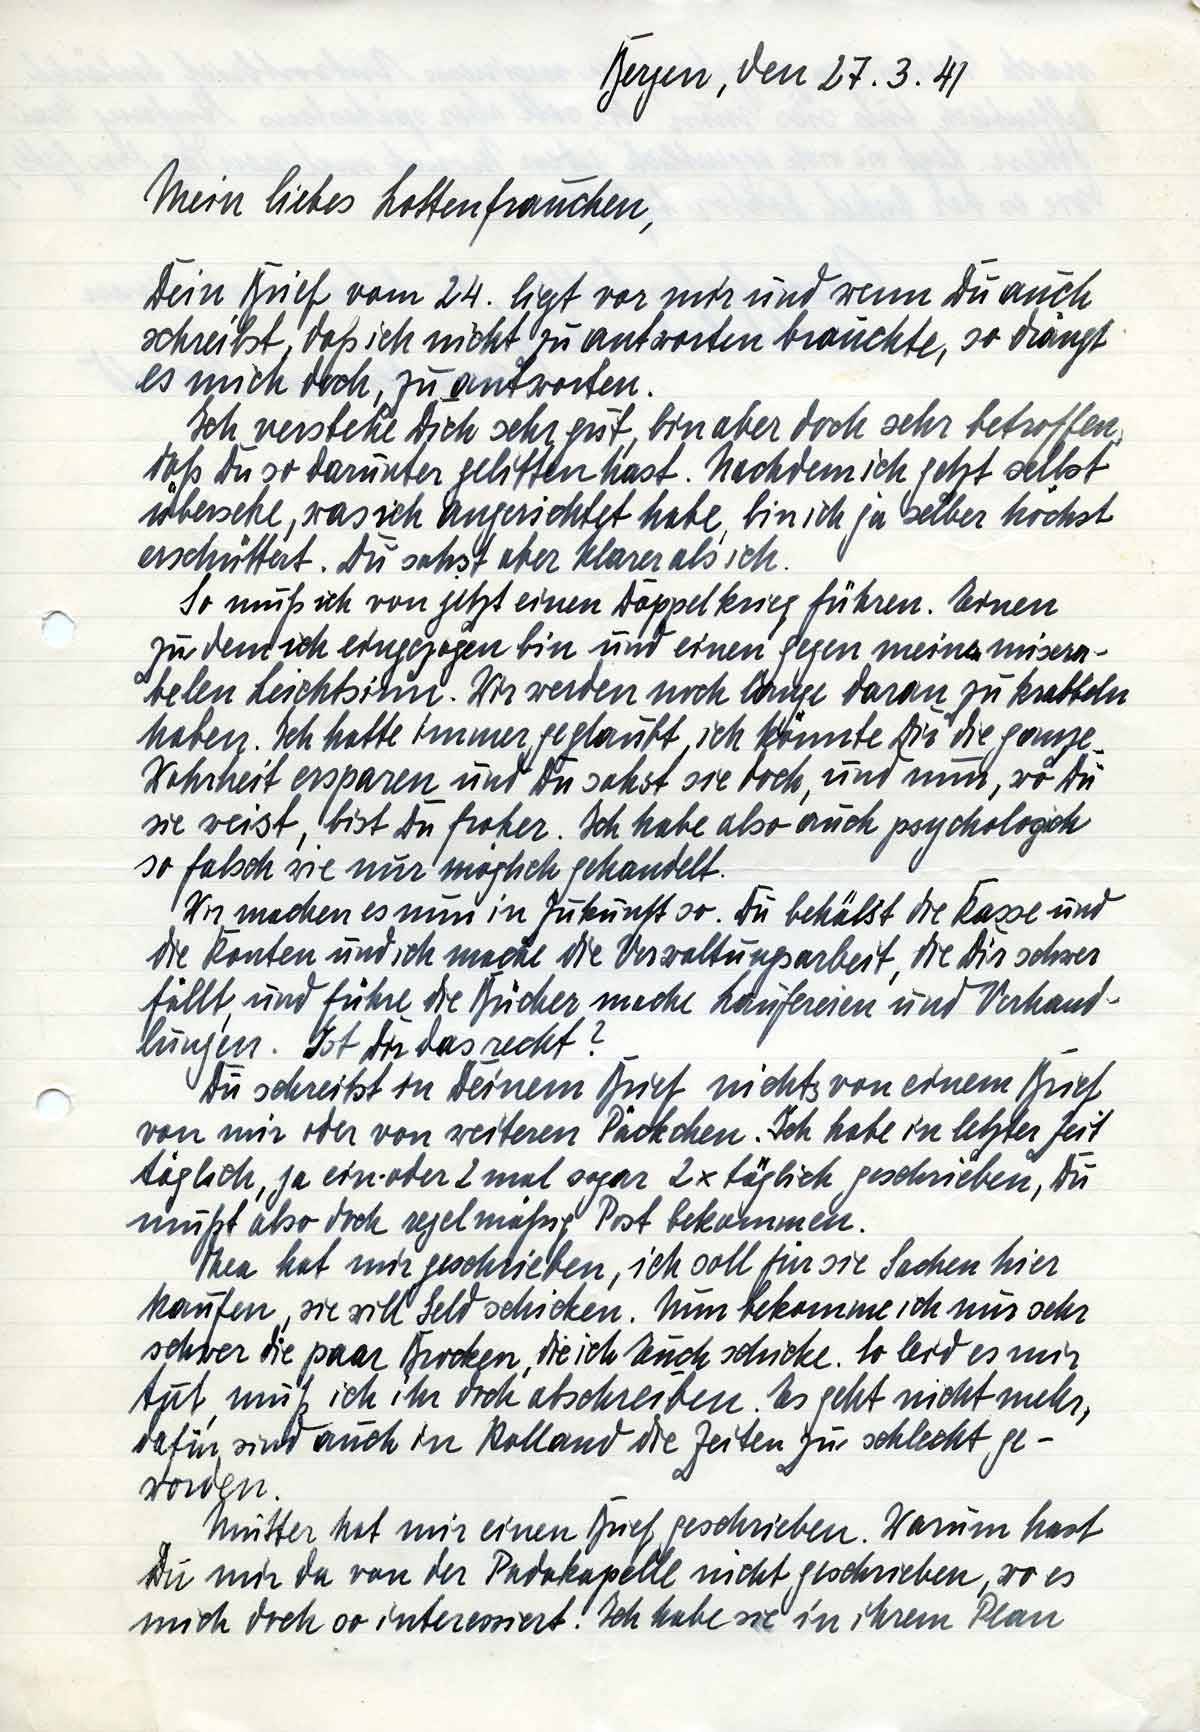 Bergen, den 27.3.41
Mein liebes Lottenfrauchen,
Dein Brief vom 24. liegt vor mir und wenn Du auch
schreibst, daß ich nicht zu antworten brauchte, so drängt
es mich doch, zu antworten.
Ich verstehe Dich sehr gut, bin aber doch sehr betroffen,
daß Du so darunter gelitten hast. Nachdem ich jetzt selbst
übersehe, was ich angerichtet habe, bin ich ja selber höchst
erschüttert. Du sahst aber klarer als ich.
So muß ich von jetzt einen Doppelkrieg führen. Einen
zu dem ich eingezogen bin und einen gegen meinen misera-
belen Leichtsinn. Wir werden noch lange daran zu krabbeln
haben. Ich hatte immer geglaubt, ich könnte Dir die ganze
Wahrheit ersparen und Du sahst sie doch, und nun, wo Du
sie weist, bist Du froher. Ich habe also auch psychologisch
so falsch wie nur möglich gehandelt.
Wir machen es nun in Zukunft so. Du behälst die Kasse und
die Konten und ich mache die Verwaltungsarbeit, die Dir schwer
fällt, und führe die Bücher, mache Laufereien und Verhand-
lungen. Ist Dir das recht?
Du schreibst in Deinem Brief nichts von einem Brief
von mir oder von weiteren Päckchen. Ich habe in letzter Zeit
täglich, ja ein- oder 2 mal sogar 2x täglich geschrieben, Du
mußt also doch regelmäßig Post bekommen.
Thea hat mir geschrieben, ich soll für sie Sachen hier
kaufen, sie will Geld schicken. Nun bekomme ich nur sehr
schwer die paar Brocken, die ich Euch schicke. So leid es mir
tut, muß ich ihr doch abschreiben. Es geht nicht mehr,
dafür sind auch in Holland die Zeiten zu schlecht ge-
worden.
Mutter hat mir einen Brief geschrieben. Warum hast
Du mir da von der nicht geschrieben, wo es
mich doch so interessiert! Ich habe sie in ihrem Plan